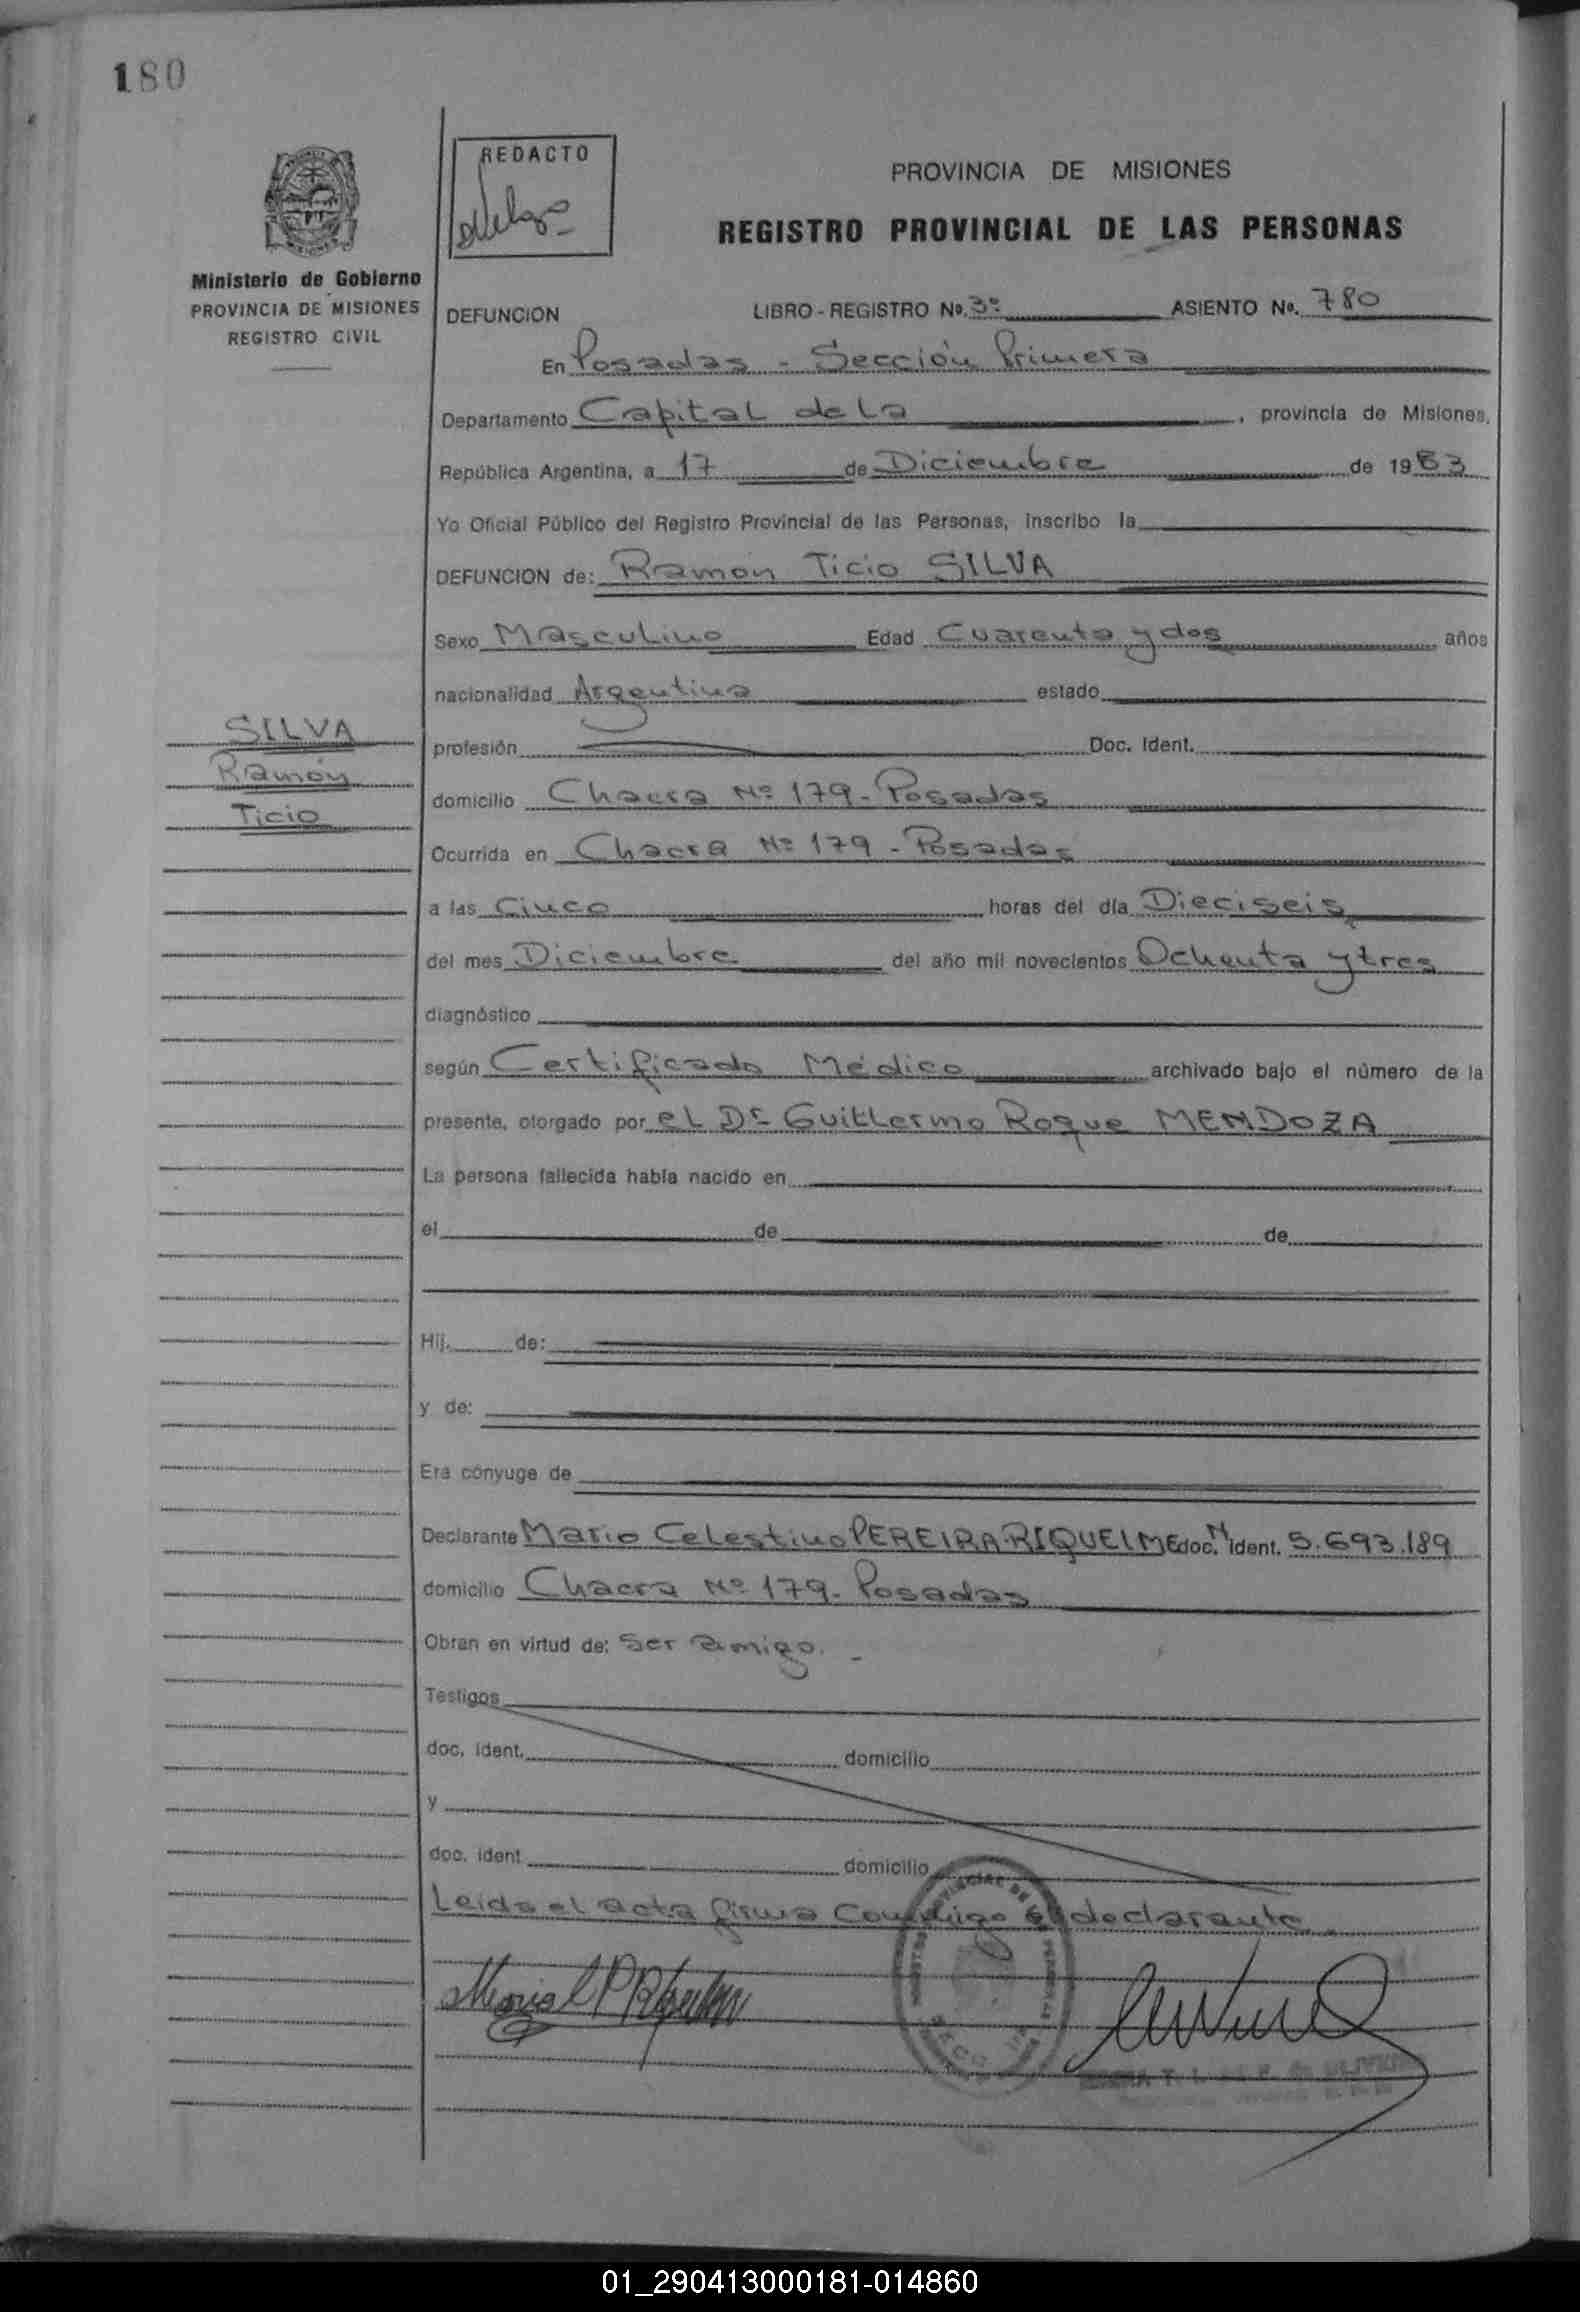 180
REDACTO
PROVINCIA DE MISIONES
REGISTRO PROVINCIAL DE LAS PERSONAS
Ministerio de Gobierno
PROVINCIA DE MISIONES
REGISTRO CIVIL
DEFUNCION LIBRO - REGISTRO Nº. 3º ASIENTO Nº. 780
En Posadas - Sección Primera
Departamento Capital de La , provincia de Misiones,
República Argentina, a 17 de Diciembre de 1983
Yo Oficial Público del Registro Provincial de las Personas, inscribo la
DEFUNCION de: Ramón Ticio SILVA
Sexo Masculino Edad Cuarenta y dos años
nacionalidad Argentina estado
SILVA
Ramón
Ticio
profesión Doc. Ident.
domicilio Chacra Nº 179 - Posadas
Ocurrida en Chacra Nº 179 - Posadas
a las Cinco horas del día Dieciseis
del mes Diciembre del año mil novecientos Ochenta y tres
diagnóstico
según Certificado Médico archivado bajo el número de la
presente, otorgado por el Dr Guillermo Roque MENDOZA
La persona fallecida había nacido en
el de de
Hij. de:
y de:
Era cónyuge de
Declarante Mario Celestino PEREIRA RIQUELME doc. N Ident. 5.693.189
domicilio Chacra Nº 179 - Posadas
Obran en virtud de: Ser amigo. -
Testigos
doc. ident. domicilio
y
doc. ident domicilio
Leida el acta firma Conmigo el declarante.
01_290413000181-014860